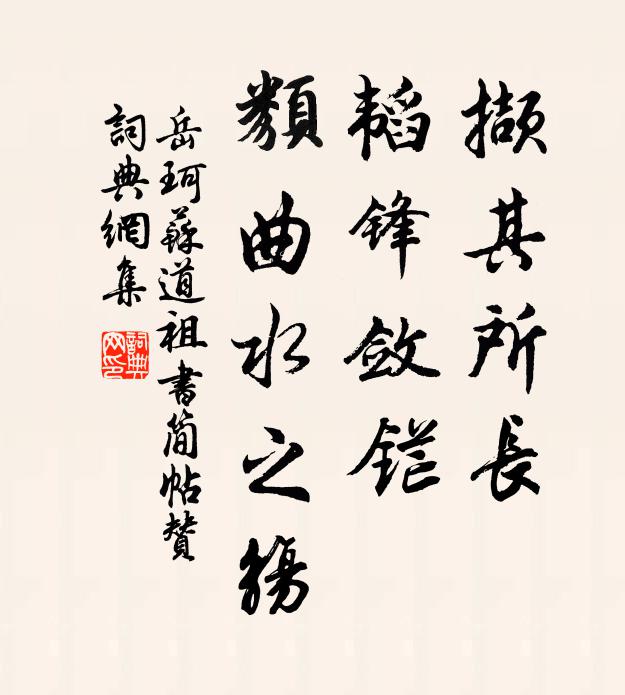 擷其所長
韜鋒斂鋩
類曲水之觴
岳珂蘇道祖書簡帖贊
詞典網集